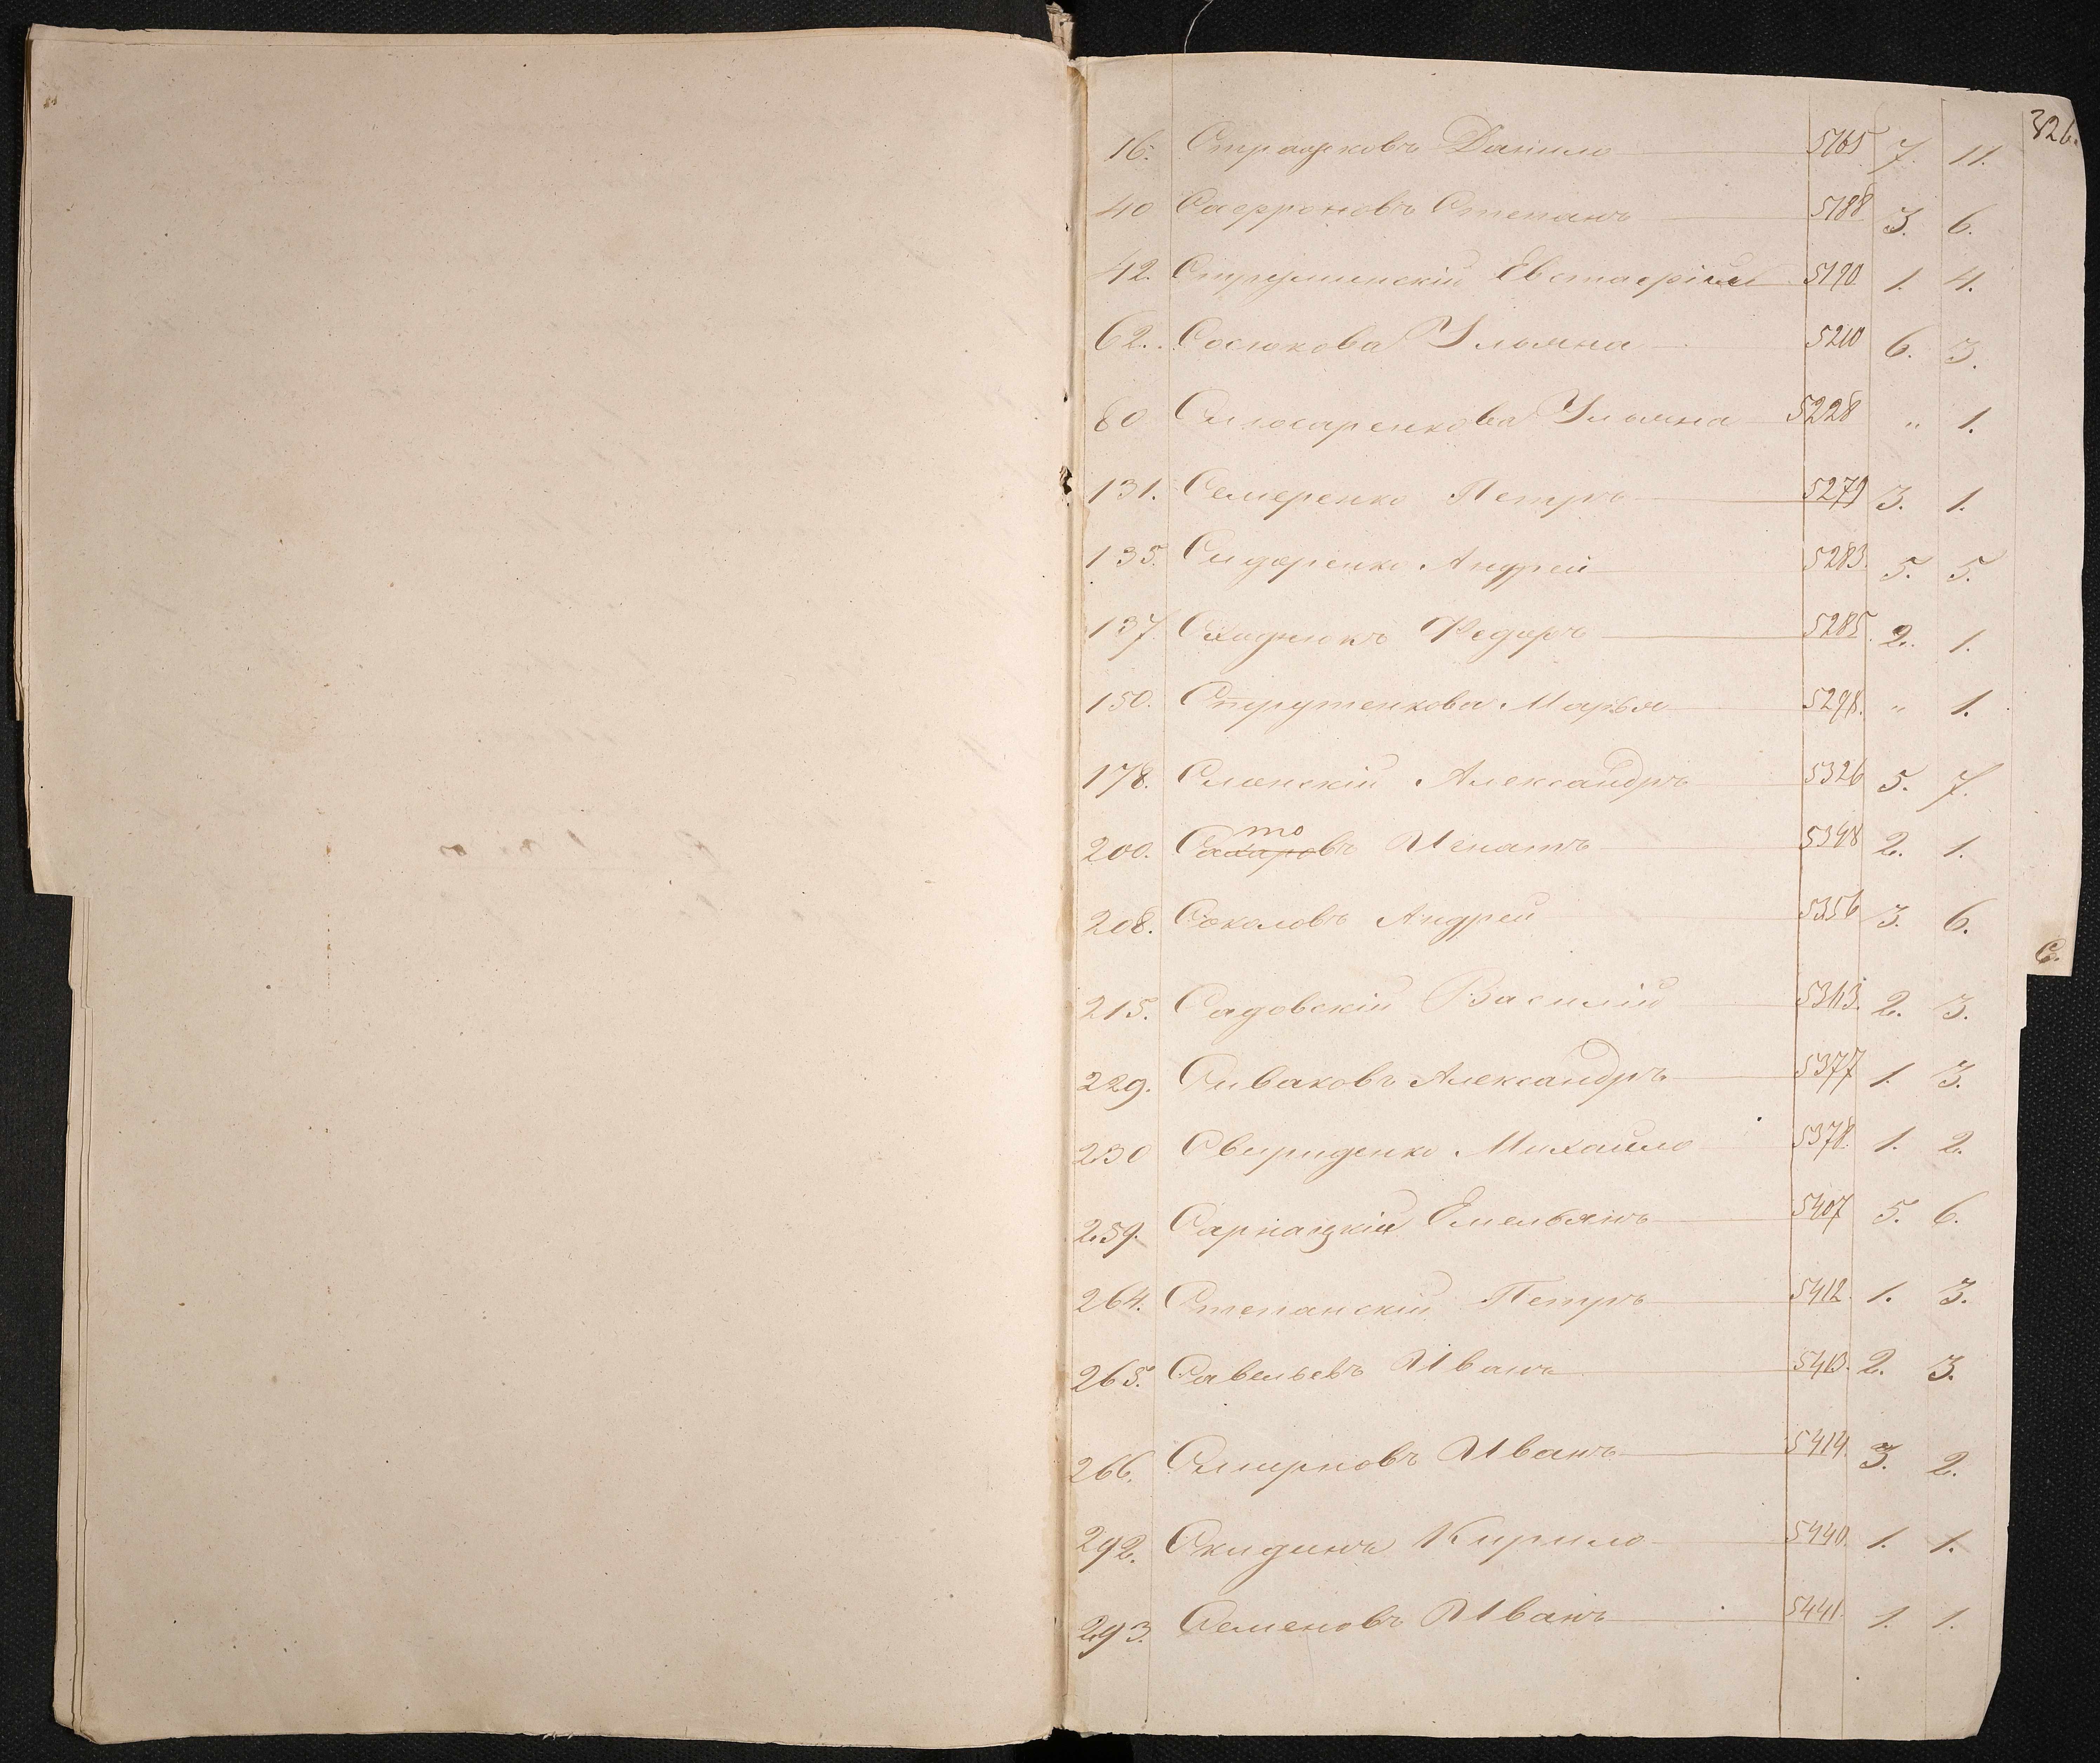 326.
16. Данило 5165 7. 11.
40 Сафроновъ Степанъ 5188 3. 6.
42. Струминскій Евстафій 5190 1. 4.
62. Сосюкова Ульяна 5210 6. 3.
80 Слюсаренкова Ульяна 5228 " 1.
131. Семеренко Петръ 5279 3. 1.
135. Сидоренко Андрей 5283. 5. 5.
137. Федоръ 5285. 2. 1.
150. Струтенкова Марья 5298. " 1.
178. Слонскій Александръ 5326 5. 7.
то
200. Сахаровъ Игнатъ 5348 2. 1.
208. Соколовъ Андрей 5356 3. 6.
С.
215. Садовскій Василій 5363. 2. 3.
229. Сиваковъ Александръ 5377 1. 3.
230 Свириденко Михайло 5378. 1. 2.
259. Сарнацкій Емельянъ 5407 5. 6.
264. Степанскій Петръ 5412. 1. 3.
265. Савельевъ Иванъ 5413. 2. 3.
266. Смирновъ Иванъ 5414. 3. 2.
292. Скидинъ Кирило 5440. 1. 1.
293. Семеновъ Иванъ 5441. 1. 1.